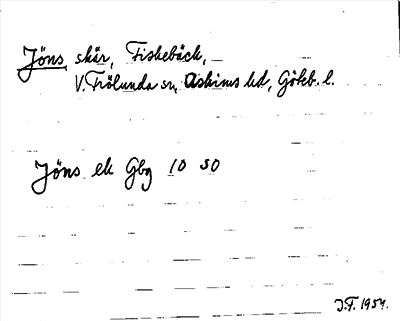 Jöns, skär, Fiskebäck,
V. Frölunda sn, Askims hd, Göteb. l.
Jöns ek Gbg 10 SO
J.F. 1954.